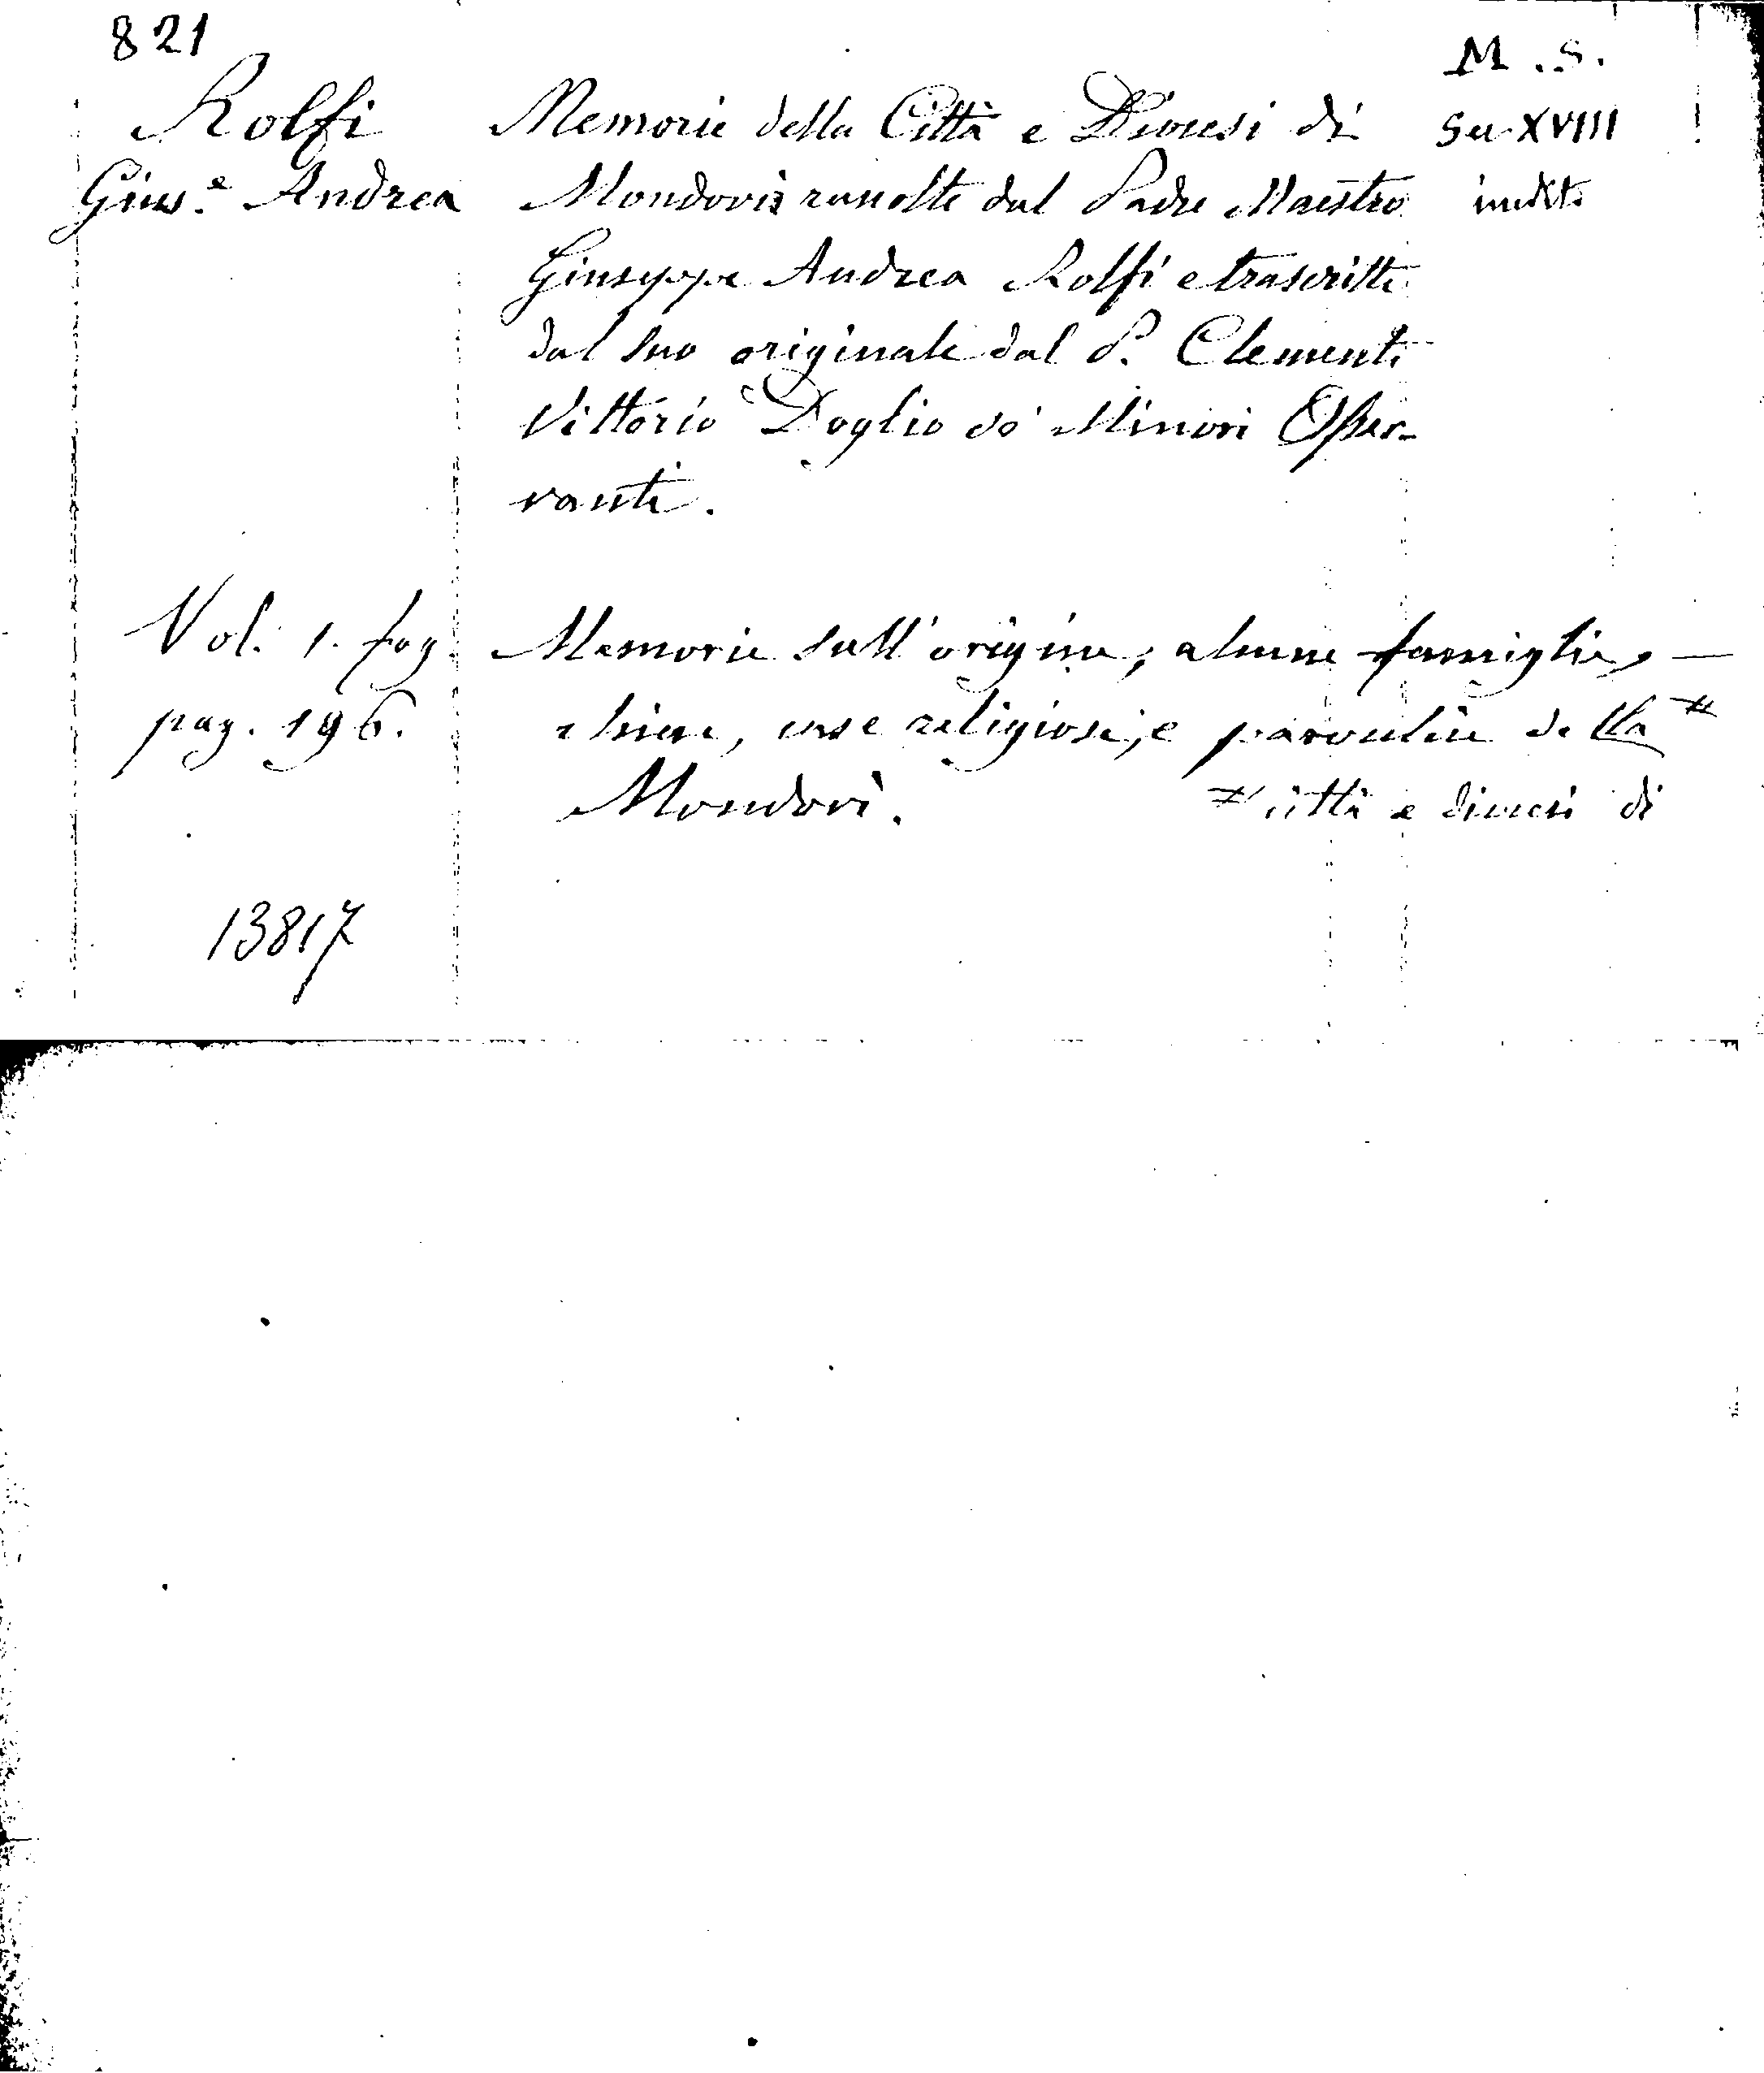 821
M. S.
Rolfi Memorie della Città e Diocesi di Sec XVIII
Gius.e Andrea Mondovì raccolte dal Padre Maestro inedite
Giuseppe Andrea Rolfi e trascritte
dal suo originale dal P. Clemente
Vittorio Doglio de' Minori Osser-
vanti.
Vol. 1. fog. Memorie sull'origine, alcune famiglie,
pag. 196. chiese, case religiose, e parocchie della #
Mondovì. # città e diocesi di
13817